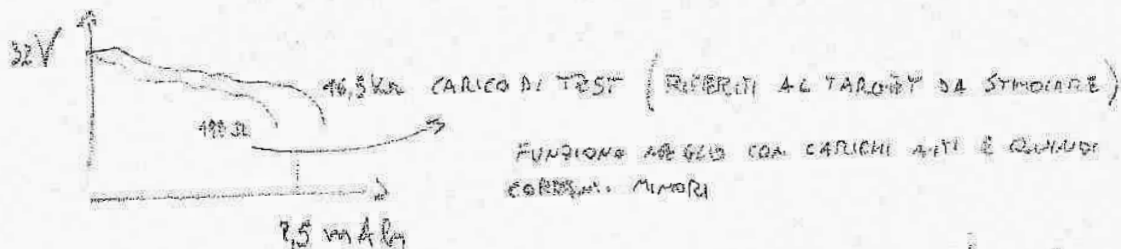 32V
16,5KΩ CARICO DI TEST (RIFERITI AL TARGET DA STIMOLARE)
199Ω
FUNZIONA MEGLIO CON CARICHI ALTI E QUINDI
CORRENTI MINORI
mAh